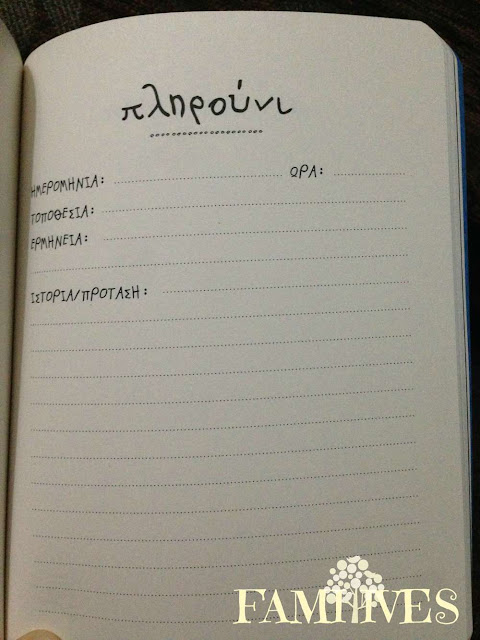 πληρούνι
ΗΜΕΡΟΜΗΝΙΑ: ΩΡΑ:
ΤΟΠΟΘΕΣΙΑ:
ΕΡΜΗΝΕΙΑ:
ΙΣΤΟΡΙΑ/ΠΡΟΤΑΣΗ:
FAMILIVES